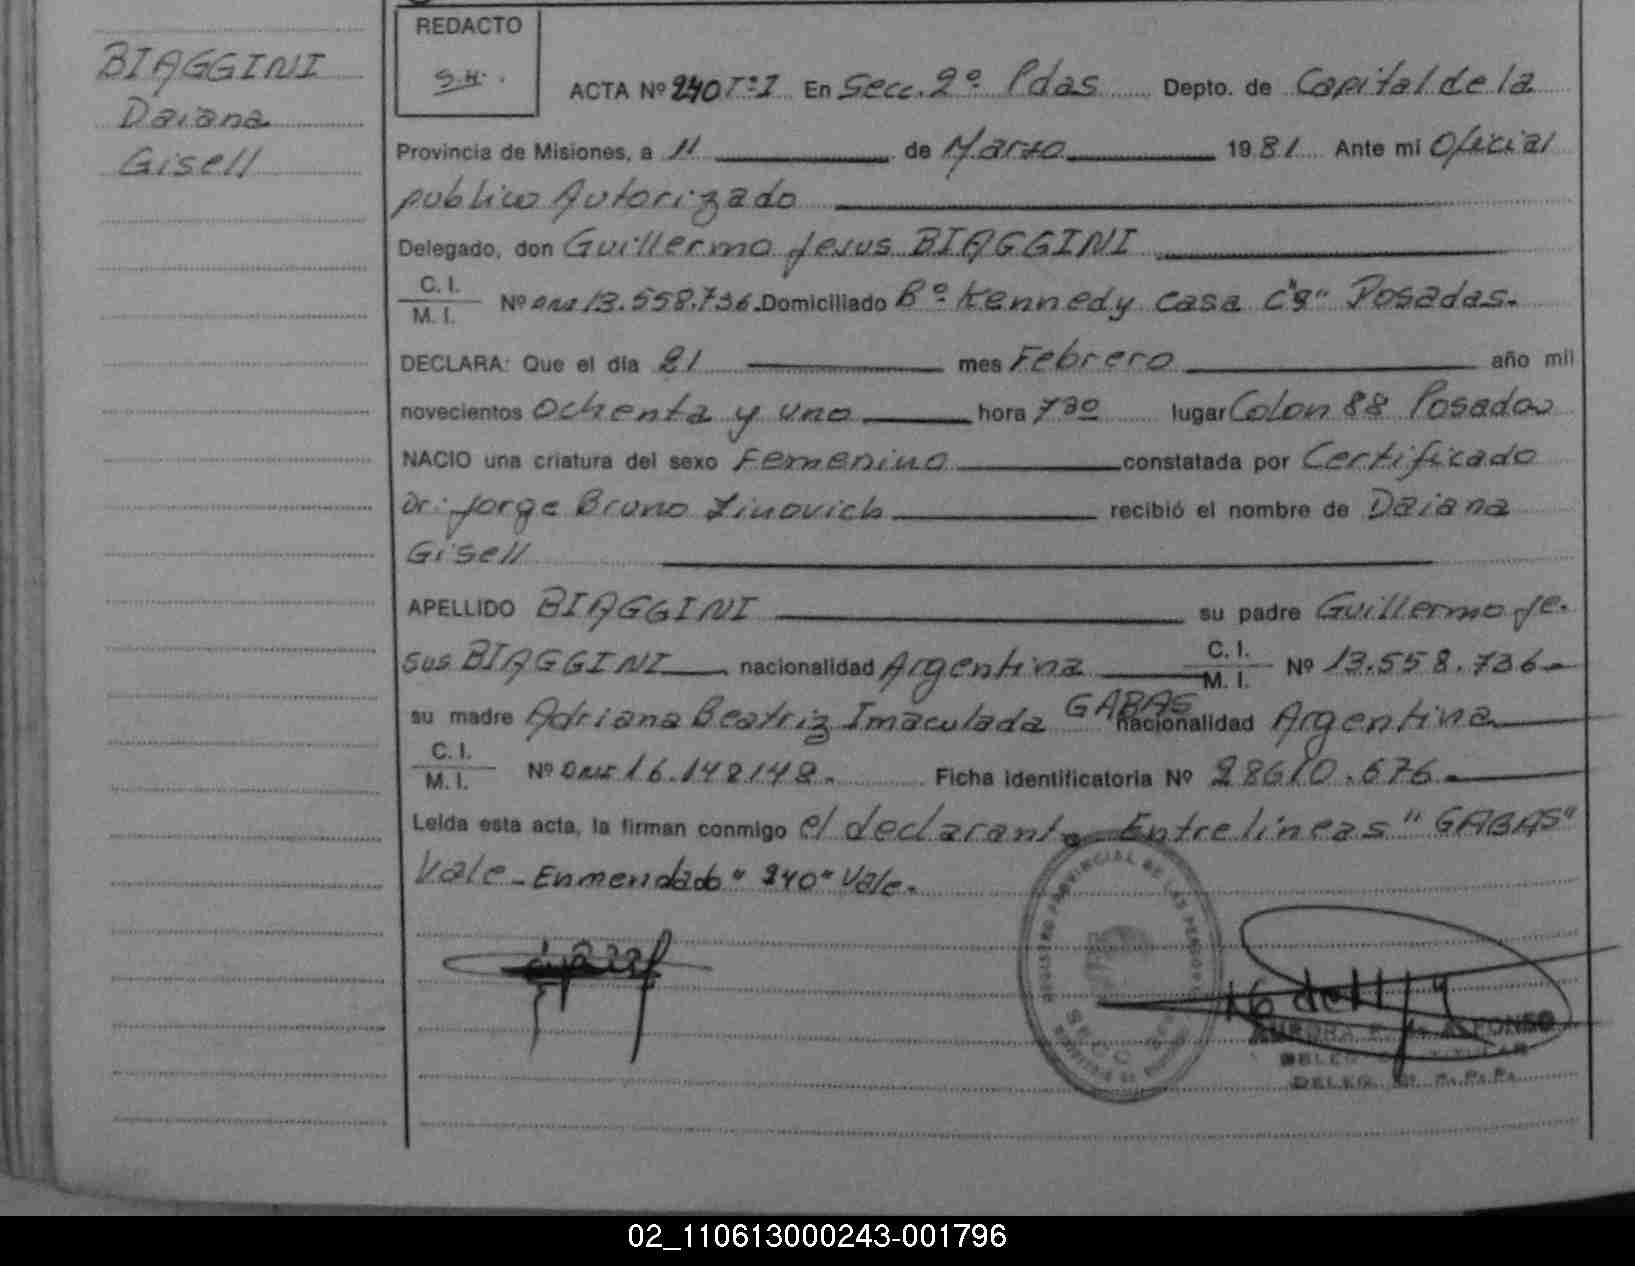 BIAGGINI
Daiana
Gisell
REDACTO
S.H.
ACTA Nº 240 Tº I En Secc. 2º Pdas Depto. de Capital de la
Provincia de Misiones, a 11 de Marzo 1981 Ante mi Oficial
publico Autorizado
Delegado, don Guillermo Jesus BIAGGINI
C. I.
M. I.
Nº DNI 13.558.736 Domiciliado Bº Kennedy casa C"8" Posadas.
DECLARA: Que el día 21 mes Febrero año mil
novecientos Ochenta y uno hora 730 lugar Colon 88 Posadas
NACIO una criatura del sexo Femenino constatada por Certificado
Dr. Jorge Bruno Zinovich recibió el nombre de Daiana
Gisell
APELLIDO BIAGGINI su padre Guillermo Je.
sus BIAGGINI nacionalidad Argentina C. I.
M. I. Nº 13.558.736
su madre Adriana Beatriz Imaculada GABAS nacionalidad Argentina
C. I.
M. I.
Nº DNI 16.142142. Ficha identificatoria Nº 28610.676
Leída esta acta, la firman conmigo el declarante Entre lineas "GABAS"
Vale - Enmendado "240" Vale.
REGISTRO PROVINCIAL DE LAS PERSONAS
SECC.
02_110613000243-001796